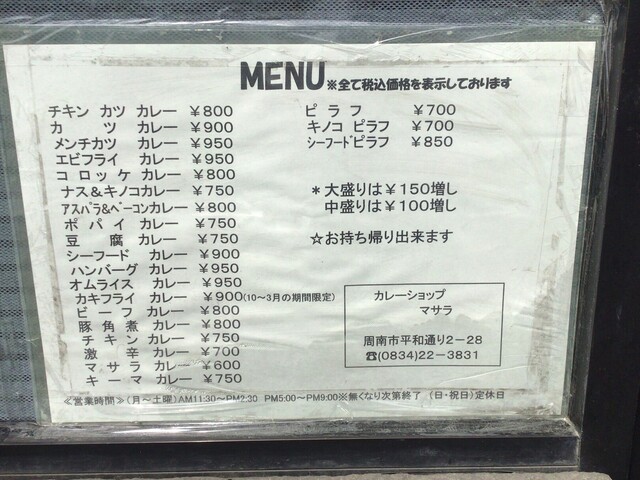 MENU ※全て税込価格を表示しております
チキン カツ カレー ￥800
カ ツ カレー ￥900
メンチカツ カレー ￥950
エビフライ カレー ￥950
コロッケ カレー ￥800
ナス＆キノコカレー ￥750
アスパラ＆ベーコンカレー ￥800
ポ パ イ カレー ￥750
豆 腐 カレー ￥750
シーフード カレー ￥900
ハンバーグ カレー ￥950
オムライス カレー ￥950
カキフライ カレー ￥900(10～3月の期間限定)
ビ ー フ カレー ￥800
豚 角 煮 カレー ￥800
チ キ ン カレー ￥750
激 辛 カレー ￥700
マ サ ラ カレー ￥600
キ ー マ カレー ￥750
ピ ラ フ ￥700
キノコ ピラフ ￥700
シーフードピラフ ￥850
＊大盛りは￥150増し
中盛りは￥100増し
☆お持ち帰り出来ます
カレーショップ
マサラ
周南市平和通り2－28
☎(0834)22－3831
≪営業時間≫(月～土曜)AM11:30～PM2:30 PM5:00～PM9:00※無くなり次第終了 (日・祝日)定休日